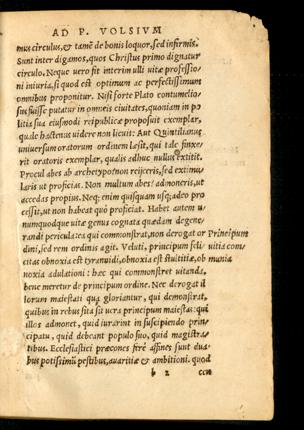 AD P. VOLSIVM
mus circulus, & tamē de bonis loquor, sed infirmis.
Sunt inter digamos, quos Christus primo dignatur
circulo. Neque uero fit interim ulli uitæ professio/
ni iniuria, si quod est optimum ac perfectissimum
omnibus proponitur. Nisi forte Plato contumelio/
sus fuisse putatur in omneis ciuitates, quoniam in po
litia sua eiusmodi reipublicæ proposuit exemplar,
quale hactenus uidere non licuit: Aut Quintilianus
uniuersum oratorum ordinem læsit, qui talē finxe/
rit oratoris exemplar, qualis adhuc nullus extitit.
Procul abes ab archetypo? non reijceris, sed extimu/
laris ut proficias. Non multum abes? admoneris, ut
accedas propius. Neq; enim quisquam usq; adeo pro
cessit, ut non habeat quò proficiat. Habet autem u/
numquodque uitæ genus cognata quædam degene/
randi pericula: ea qui commonstrat, non derogat or
dini, sed rem ordinis agit. Veluti, principum feli/
citas obnoxia est tyrannidi, obnoxia est stultitiæ, ob
noxia adulationi: hæc qui commonstret uitanda,
bene meretur de principum ordine. Nec derogat il
lorum maiestati qua gloriantur, qui demonstrat,
quibus in rebus sita sit uera principum maiestas: qui
illos admonet, quid iurarint in suscipiendo prin/
cipatu, quid debeant populo suo, quid magistra/
tibus. Ecclesiastici præcones ferè affines sunt dua/
bus potissimū pestibus, auaritiæ & ambitioni. quod
b 2 ccu
Principum
uitia com/
munia